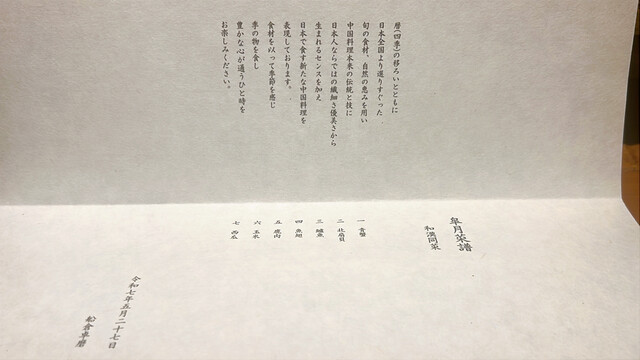 暦(四季)の移ろいとともに
日本全国より選りすぐった
旬の食材、自然の恵みを用い
中国料理本来の伝統と技に
日本人ならではの繊細さ優美さから
生まれるセンスを加え
日本で食す新たな中国料理を
表現しております。
食材を以って季節を感じ
季の物を食し
豊かな心が通うひと時を
お楽しみください。
皐月菜譜
和漢同菜
一 青蟹
二 北扇貝
三 鱸魚
四 魚翅
五 鹿肉
六 玉米
七 西瓜
令和七年五月二十七日